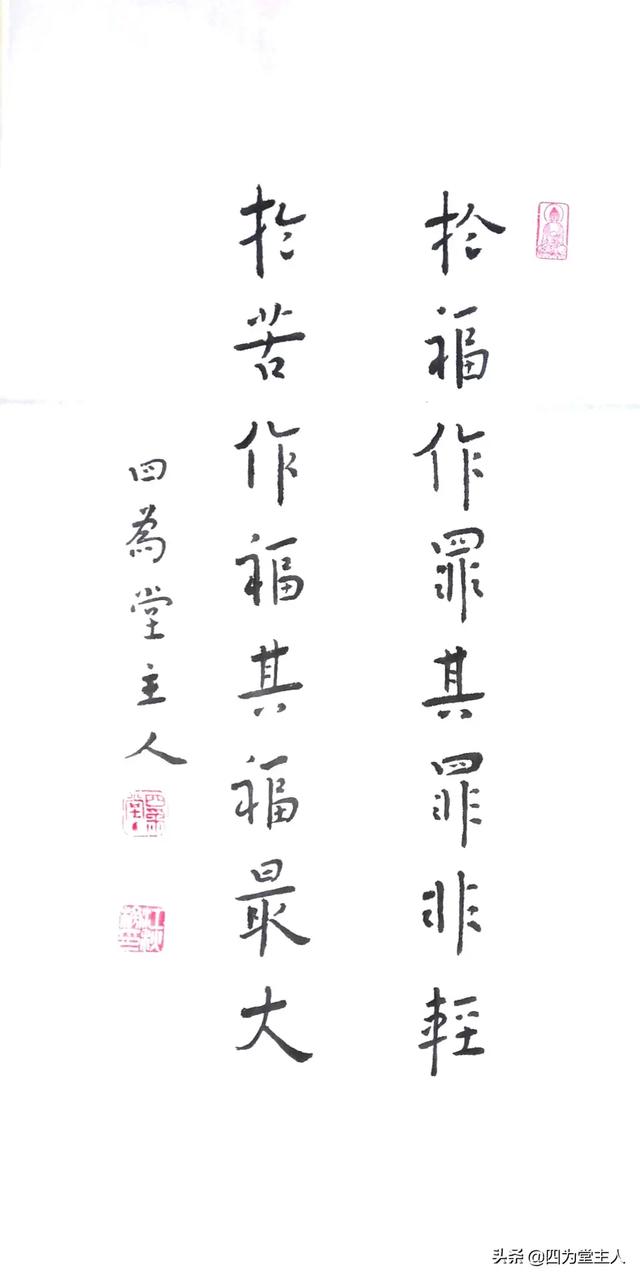 於福作罪其罪非輕
於苦作福其福最大
四為堂主人
头条 @四为堂主人